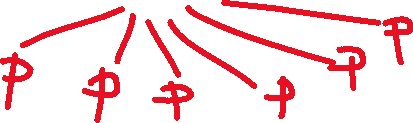 P P P P P P